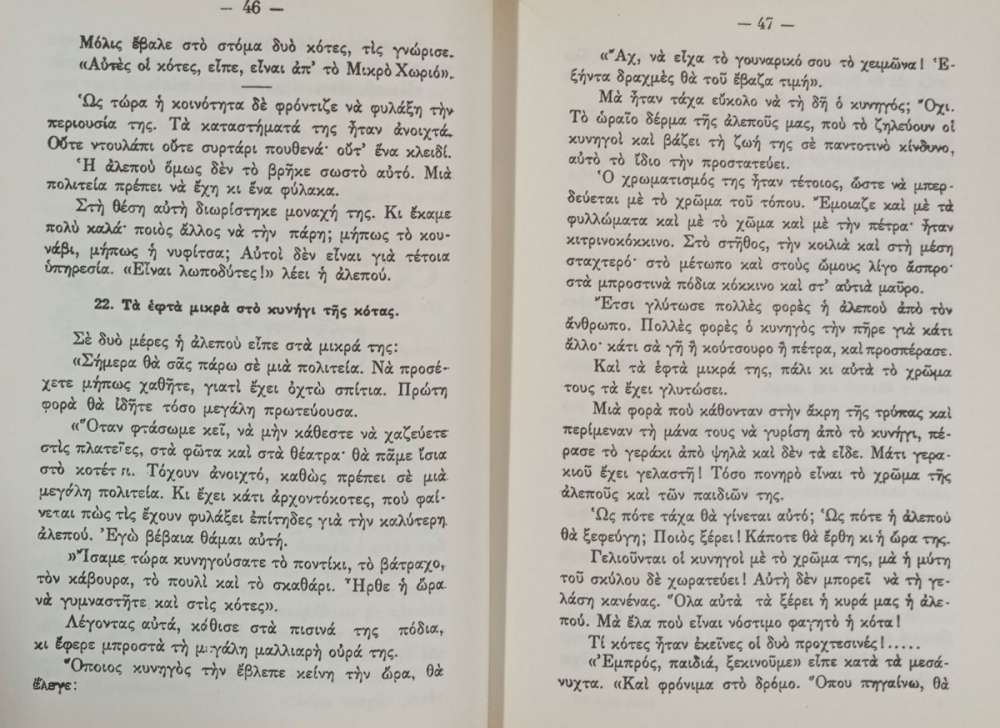 — 46 —
Μόλις ἔβαλε στὸ στόμα δυὸ κότες, τὶς γνώρισε.
«Αὐτὲς οἱ κότες, εἶπε, εἶναι ἀπ' τὸ Μικρὸ Χωριό».
Ὡς τώρα ἡ κοινότητα δὲ φρόντιζε νὰ φυλάξη τὴν
περιουσία της. Τὰ καταστήματά της ἦταν ἀνοιχτά.
Οὔτε ντουλάπι οὔτε συρτάρι πουθενά· οὔτ' ἕνα κλειδί.
Ἡ ἀλεποὺ ὅμως δὲν τὸ βρῆκε σωστὸ αὐτό. Μιὰ
πολιτεία πρέπει νὰ ἔχη κι ἕνα φύλακα.
Στὴ θέση αὐτὴ διωρίστηκε μοναχή της. Κι ἔκαμε
πολὺ καλά· ποιὸς ἄλλος νὰ τὴν πάρη; μήπως τὸ κου-
νάβι, μήπως ἡ νυφίτσα; Αὐτοὶ δὲν εἶναι γιὰ τέτοια
ὑπηρεσία. «Εἶναι λωποδύτες!» λέει ἡ ἀλεπού.
22. Τὰ ἑφτὰ μικρὰ στὸ κυνήγι τῆς κότας.
Σὲ δυὸ μέρες ἡ ἀλεποὺ εἶπε στὰ μικρά της:
«Σήμερα θὰ σᾶς πάρω σὲ μιὰ πολιτεία. Νὰ προσέ-
χετε μήπως χαθῆτε, γιατὶ ἔχει ὀχτὼ σπίτια. Πρώτη
φορὰ θὰ ἰδῆτε τόσο μεγάλη πρωτεύουσα.
«Ὅταν φτάσωμε κεῖ, νὰ μὴν κάθεστε νὰ χαζεύετε
στὶς πλατεῖες, στὰ φῶτα καὶ στὰ θέατρα· θὰ πᾶμε ἴσια
στὸ κοτέτσι. Τὄχουν ἀνοιχτό, καθὼς πρέπει σὲ μιὰ
μεγάλη πολιτεία. Κι ἔχει κάτι ἀρχοντόκοτες, ποὺ φαί-
νεται πὼς τὶς ἔχουν φυλάξει ἐπίτηδες γιὰ τὴν καλύτερη
ἀλεπού. Ἐγὼ βέβαια θἆμαι αὐτή.
»Ἴσαμε τώρα κυνηγούσατε τὸ ποντίκι, τὸ βάτραχο,
τὸν κάβουρα, τὸ πουλὶ καὶ τὸ σκαθάρι. Ἦρθε ἡ ὥρα
νὰ γυμναστῆτε καὶ στὶς κότες».
Λέγοντας αὐτά, κάθισε στὰ πισινά της πόδια,
κι ἔφερε μπροστὰ τὴ μεγάλη μαλλιαρὴ οὐρά της.
Ὅποιος κυνηγὸς τὴν ἔβλεπε κείνη τὴν ὥρα, θὰ
ἔλεγε:
— 47 —
«Ἄχ, νὰ εἶχα τὸ γουναρικό σου τὸ χειμῶνα! Ἑ-
ξήντα δραχμὲς θὰ τοῦ ἔβαζα τιμή».
Μὰ ἦταν τάχα εὔκολο νὰ τὴ δῆ ὁ κυνηγός; Ὄχι.
Τὸ ὡραῖο δέρμα τῆς ἀλεποῦς μας, ποὺ τὸ ζηλεύουν οἱ
κυνηγοὶ καὶ βάζει τὴ ζωή της σὲ παντοτινὸ κίνδυνο,
αὐτὸ τὸ ἴδιο τὴν προστατεύει.
Ὁ χρωματισμός της ἦταν τέτοιος, ὥστε νὰ μπερ-
δεύεται μὲ τὸ χρῶμα τοῦ τόπου. Ἔμοιαζε καὶ μὲ τὰ
φυλλώματα καὶ μὲ τὸ χῶμα καὶ μὲ τὴν πέτρα· ἦταν
κιτρινοκόκκινο. Στὸ στῆθος, τὴν κοιλιὰ καὶ στὴ μέση
σταχτερό· στὸ μέτωπο καὶ στοὺς ὤμους λίγο ἄσπρο·
στὰ μπροστινὰ πόδια κόκκινο καὶ στ' αὐτιὰ μαῦρο.
Ἔτσι γλύτωσε πολλὲς φορὲς ἡ ἀλεποὺ ἀπὸ τὸν
ἄνθρωπο. Πολλὲς φορὲς ὁ κυνηγὸς τὴν πῆρε γιὰ κάτι
ἄλλο· κάτι σὰ γῆ ἢ κούτσουρο ἢ πέτρα, καὶ προσπέρασε.
Καὶ τὰ ἑφτὰ μικρά της, πάλι κι αὐτὰ τὸ χρῶμα
τους τὰ ἔχει γλυτώσει.
Μιὰ φορὰ ποὺ κάθονταν στὴν ἄκρη τῆς τρύπας καὶ
περίμεναν τὴ μάνα τους νὰ γυρίση ἀπὸ τὸ κυνήγι, πέ-
ρασε τὸ γεράκι ἀπὸ ψηλὰ καὶ δὲν τὰ εἶδε. Μάτι γερα-
κιοῦ ἔχει γελαστῆ! Τόσο πονηρὸ εἶναι τὸ χρῶμα τῆς
ἀλεποῦς καὶ τῶν παιδιῶν της.
Ὡς πότε τάχα θὰ γίνεται αὐτό; Ὡς πότε ἡ ἀλεποὺ
θὰ ξεφεύγη; Ποιὸς ξέρει! Κάποτε θὰ ἔρθη κι ἡ ὥρα της.
Γελιοῦνται οἱ κυνηγοὶ μὲ τὸ χρῶμα της, μὰ ἡ μύτη
τοῦ σκύλου δὲ χωρατεύει! Αὐτὴ δὲν μπορεῖ νὰ τὴ γε-
λάση κανένας. Ὅλα αὐτὰ τὰ ξέρει ἡ κυρά μας ἡ ἀλε-
πού. Μὰ ἔλα ποὺ εἶναι νόστιμο φαγητὸ ἡ κότα!
Τί κότες ἦταν ἐκεῖνες οἱ δυὸ προχτεσινές!.....
«Ἐμπρός, παιδιά, ξεκινοῦμε» εἶπε κατὰ τὰ μεσά-
νυχτα. «Καὶ φρόνιμα στὸ δρόμο. Ὅπου πηγαίνω, θὰ